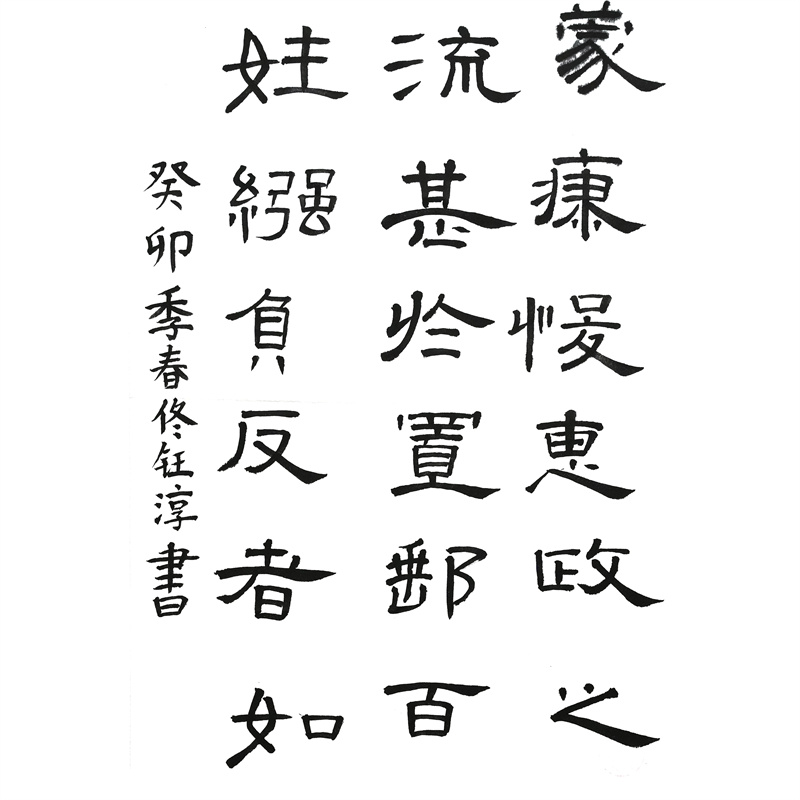 蒙瘳悛惠政之
流甚於置郵百
姓繦負反者如
癸卯季春佟钰淳書